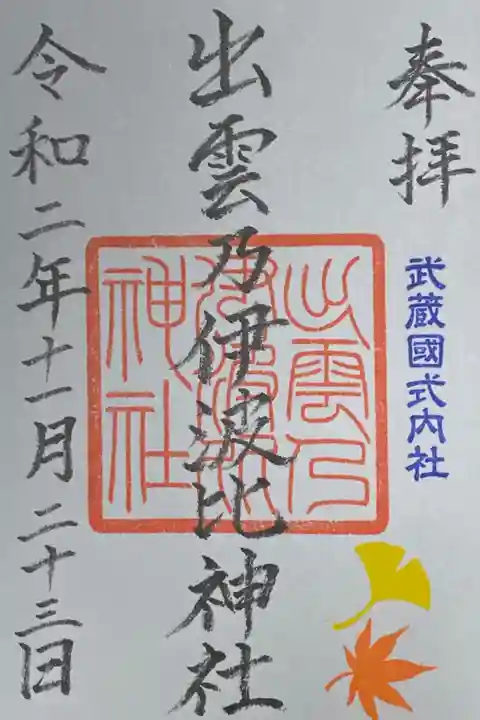 奉拝
武蔵國式内社
出雲乃伊波比神社
出雲乃
伊波比
神社
令和二年十一月二十三日